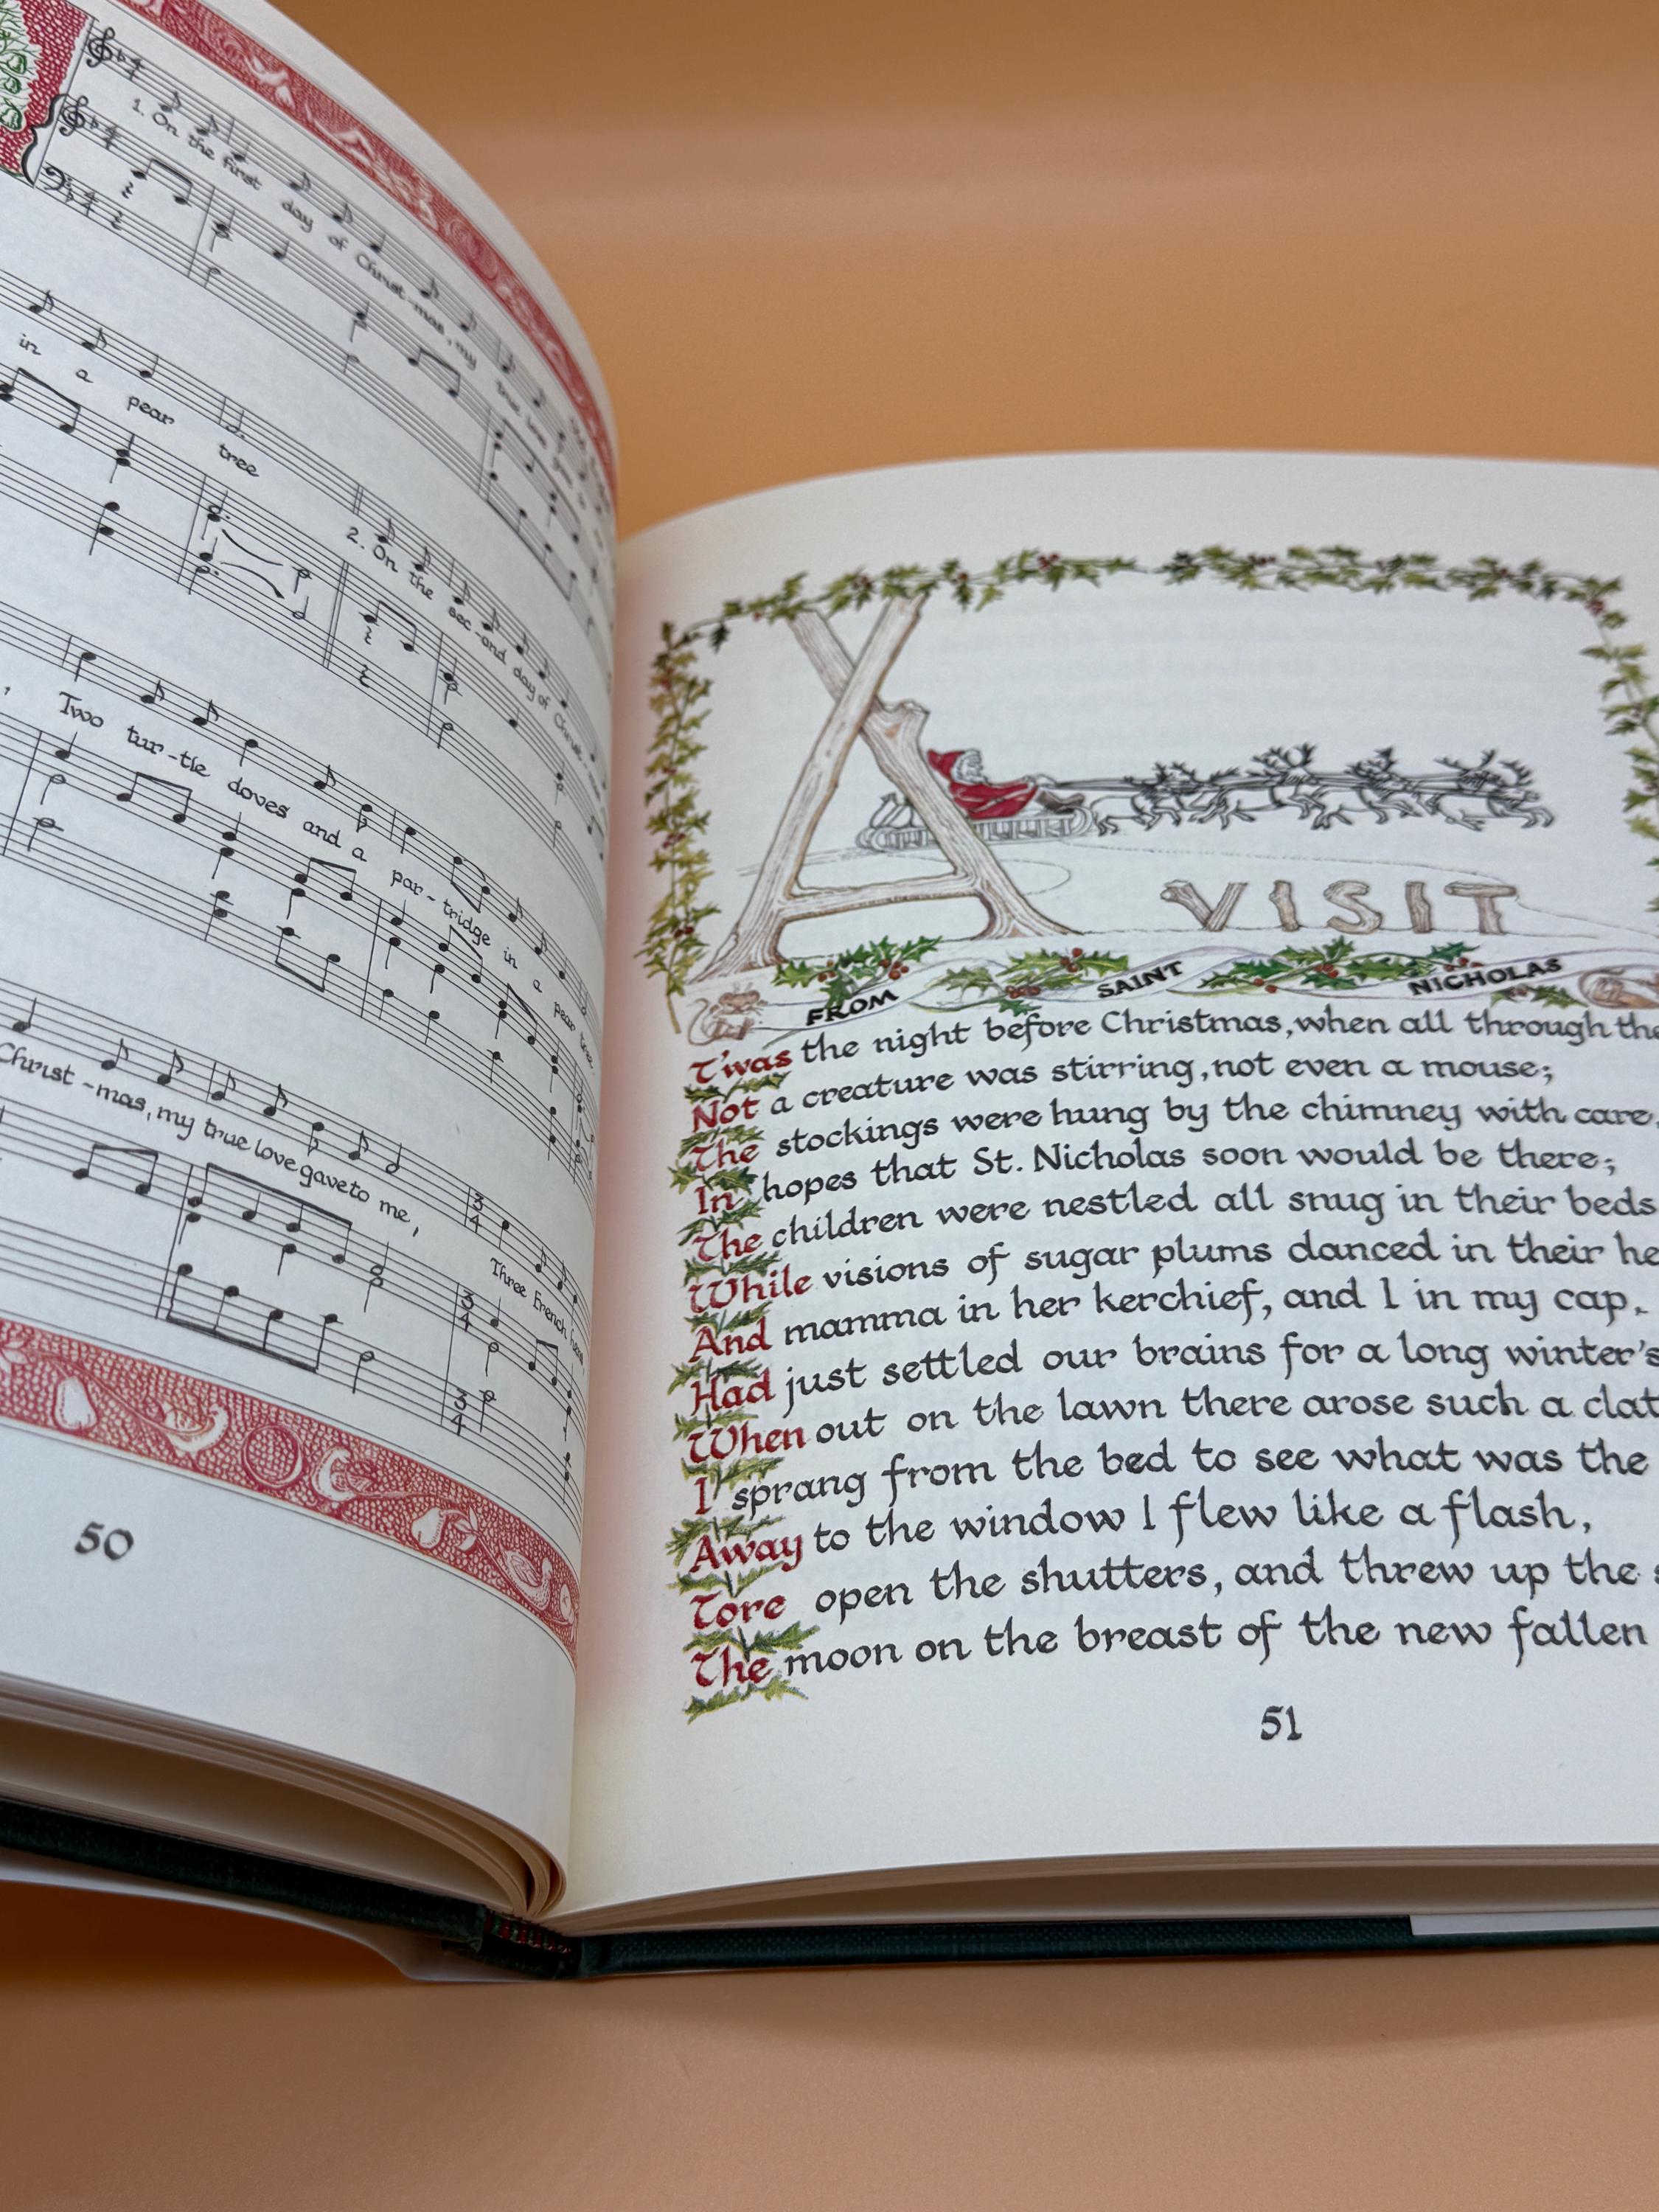 1. On the first day of Christ-mas, my true love gave to
in a pear tree
2. On the sec-ond day of Christ-mas
Two tur-tle doves and a par-tridge in a pear tree.
Christ-mas, my true love gave to me,
Three French hens
50
A VISIT
FROM SAINT NICHOLAS
T'was the night before Christmas, when all through the
Not a creature was stirring, not even a mouse;
The stockings were hung by the chimney with care,
In hopes that St. Nicholas soon would be there;
The children were nestled all snug in their beds
While visions of sugar plums danced in their he
And mamma in her kerchief, and I in my cap,
Had just settled our brains for a long winter's
When out on the lawn there arose such a clat
I sprang from the bed to see what was the
Away to the window I flew like a flash,
Tore open the shutters, and threw up the s
The moon on the breast of the new fallen
51